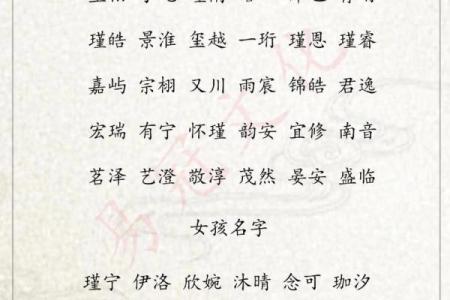 瑾皓 景淮 玺越 一珩 瑾恩 瑾睿
嘉屿 宗栩 又川 雨宸 锦皓 君逸
宏瑞 有宁 怀瑾 韵安 宜修 南音
茗泽 艺澄 敬淳 茂然 晏安 盛临
女孩名字
瑾宁 伊洛 欣婉 沐晴 念可 珈汐